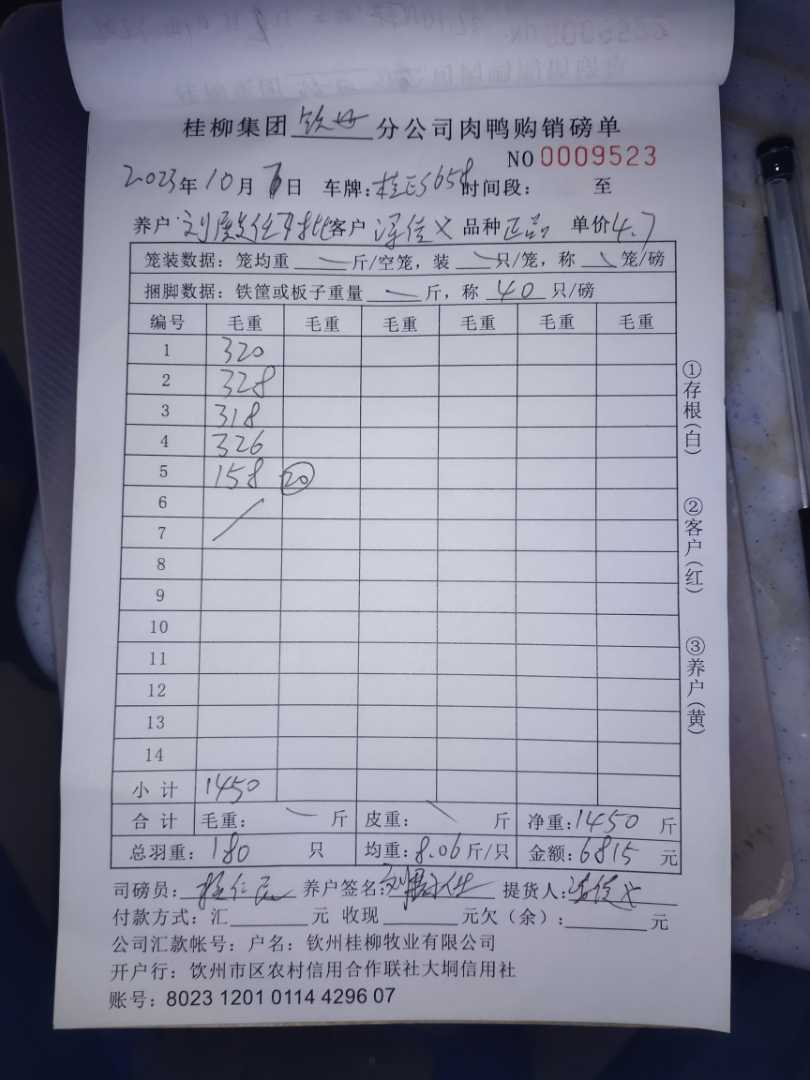 桂柳集团 钦州 分公司肉鸭购销磅单
NO 0009523
2023年10月 日 车牌:桂E5658 时间段: 至
养户: 客户 品种 正品 单价 4.7
笼装数据:笼均重 斤/空笼,装 只/笼,称 笼/磅
捆脚数据:铁筐或板子重量 斤,称 40 只/磅
编号 毛重 毛重 毛重 毛重 毛重 毛重
1 320
2 328
3 318
4 326
5 158 20
6
7
8
9
10
11
12
13
14
小计 1450
合计 毛重: 斤 皮重: 斤 净重:1450 斤
总羽重:180 只 均重:8.06斤/只 金额:6815 元
司磅员: 养户签名: 提货人:
付款方式:汇 元 收现 元欠(余): 元
公司汇款帐号:户名:钦州桂柳牧业有限公司
开户行:钦州市区农村信用合作联社大垌信用社
账号:8023 1201 0114 4296 07
①存根(白)
②客户(红)
③养户(黄)